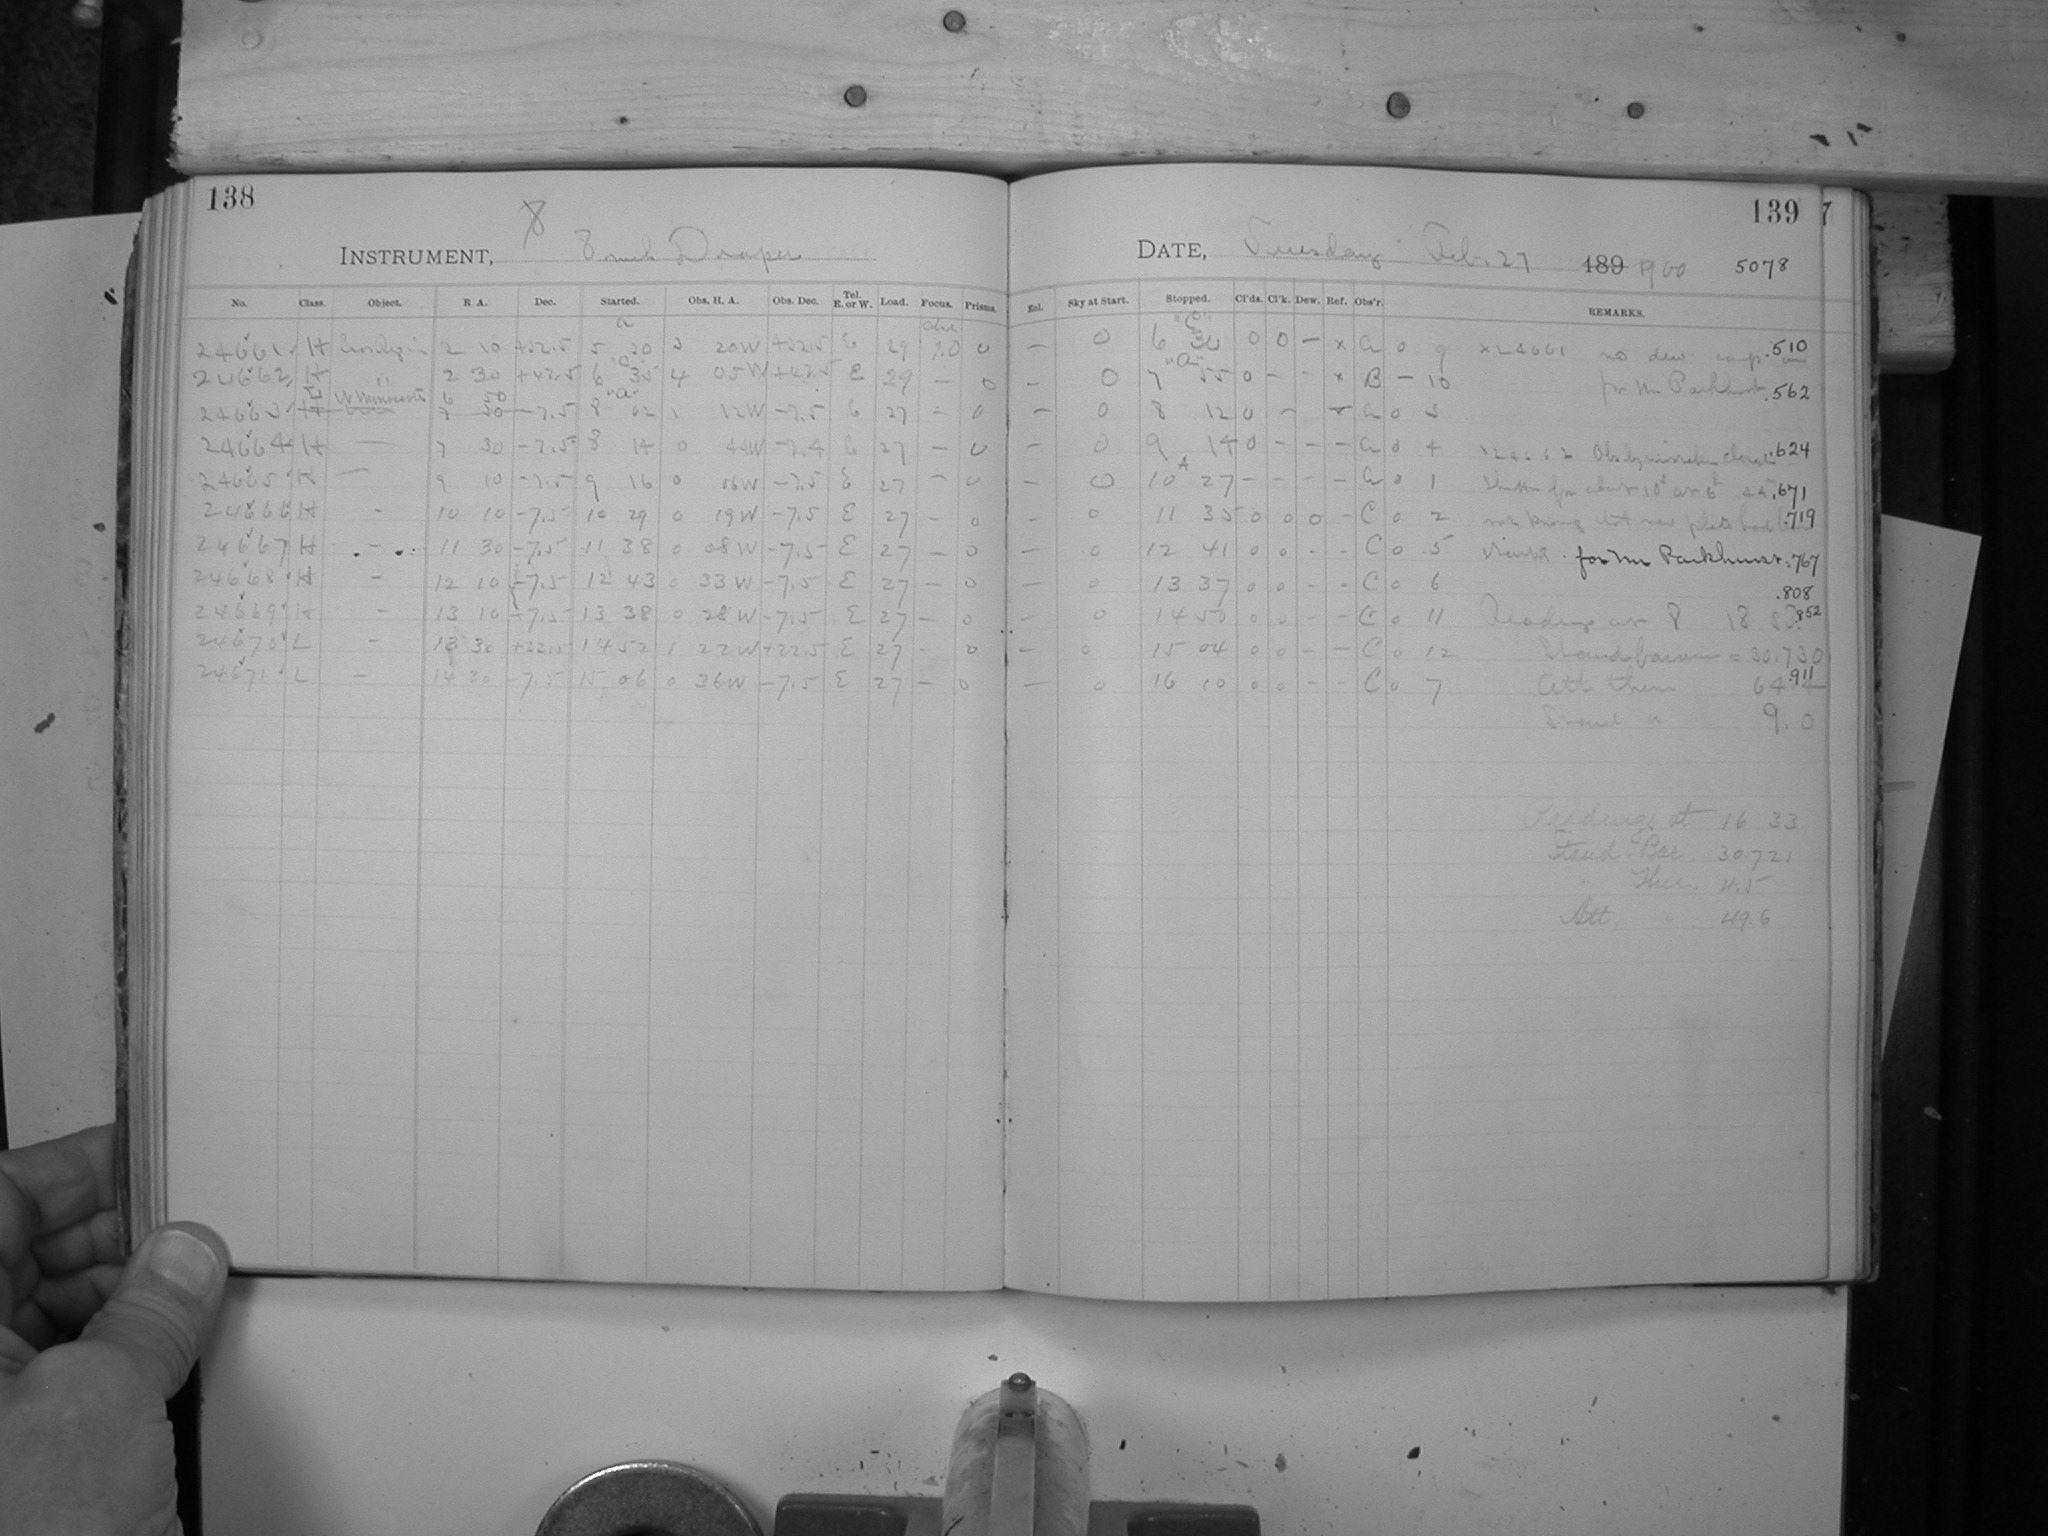 138
8
INSTRUMENT, 8 inch Draper
No. Class. Object. R. A. Dec. Started. Obs. H. A. Obs. Dec. Tel. E. or W. Load. Focus. Prisms.
24661 H 2 10 +32.5 5 20 3 20W +32.5 E 29 9.0 0
24662 H " 2 30 +42.5 6 "C" 35 4 05W +42.5 E 29 – 0
24663 6 50 –7.5 8 "a" 02 1 12W –7.5 E 27 – 0
24664 H — 7 30 –7.5 8 14 0 44W –7.4 E 27 – 0
24665 H — 9 10 –7.5 9 16 0 16W –7.5 E 27 – 0
24666 H – 10 10 –7.5 10 29 0 19W –7.5 E 27 – 0
24667 H – 11 30 –7.5 11 38 0 08W –7.5 E 27 – 0
24668 H – 12 10 –7.5 12 43 0 33W –7.5 E 27 – 0
24669 H – 13 10 –7.5 13 38 0 28W –7.5 E 27 – 0
24670 L – 13 30 +22.5 14 52 1 22W +22.5 E 27 – 0
24671 L – 14 30 –7.5 15 06 0 36W –7.5 E 27 – 0
139
7
DATE, Tuesday Feb. 27 189 1900 5078
Enl. Sky at Start. Stopped. Cl'ds. Cl'k. Dew. Ref. Obs'r. REMARKS.
– 0 6 "C" 30 0 0 – x a 0 9 x24661 no dew cap on .510
– 0 7 "a" 55 0 – – x B – 10 for Mr Parkhurst .562
– 0 8 12 0 – x a 0 3
– 0 9 14 0 – – – a 0 4 x24662 Obs by mistake closed .624
– 0 10 27 – – – – a 0 1 shutter for about 10 at 6 44 .671
– 0 11 35 0 0 0 – C 0 2 not knowing that new plate had been .719
– 0 12 41 0 0 – – C 0 5 started. for Mr Parkhurst .767
0 13 37 0 0 – – C 0 6 .808
0 14 50 0 0 – – C 0 11 Readings at 8 18 .852
– 0 15 04 0 0 – – C 0 12 Stand barom = 30.730
– 0 16 10 0 0 – – C 0 7 Att them .911
Stand " 9.0
Readings at 16 33
Stand. Bar. 30.721
" Ther. 4.5
Att. " 49.6